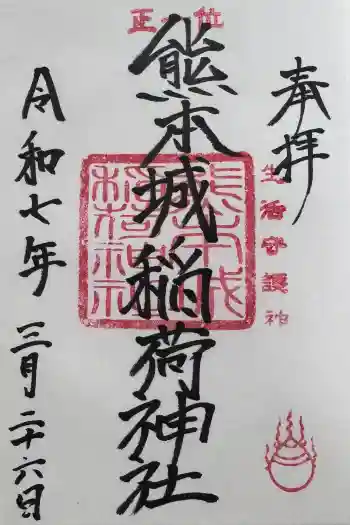 奉拝
生活守護神
正一位
熊本城稲荷神社
熊本城稲荷神社
令和七年
三月二十六日